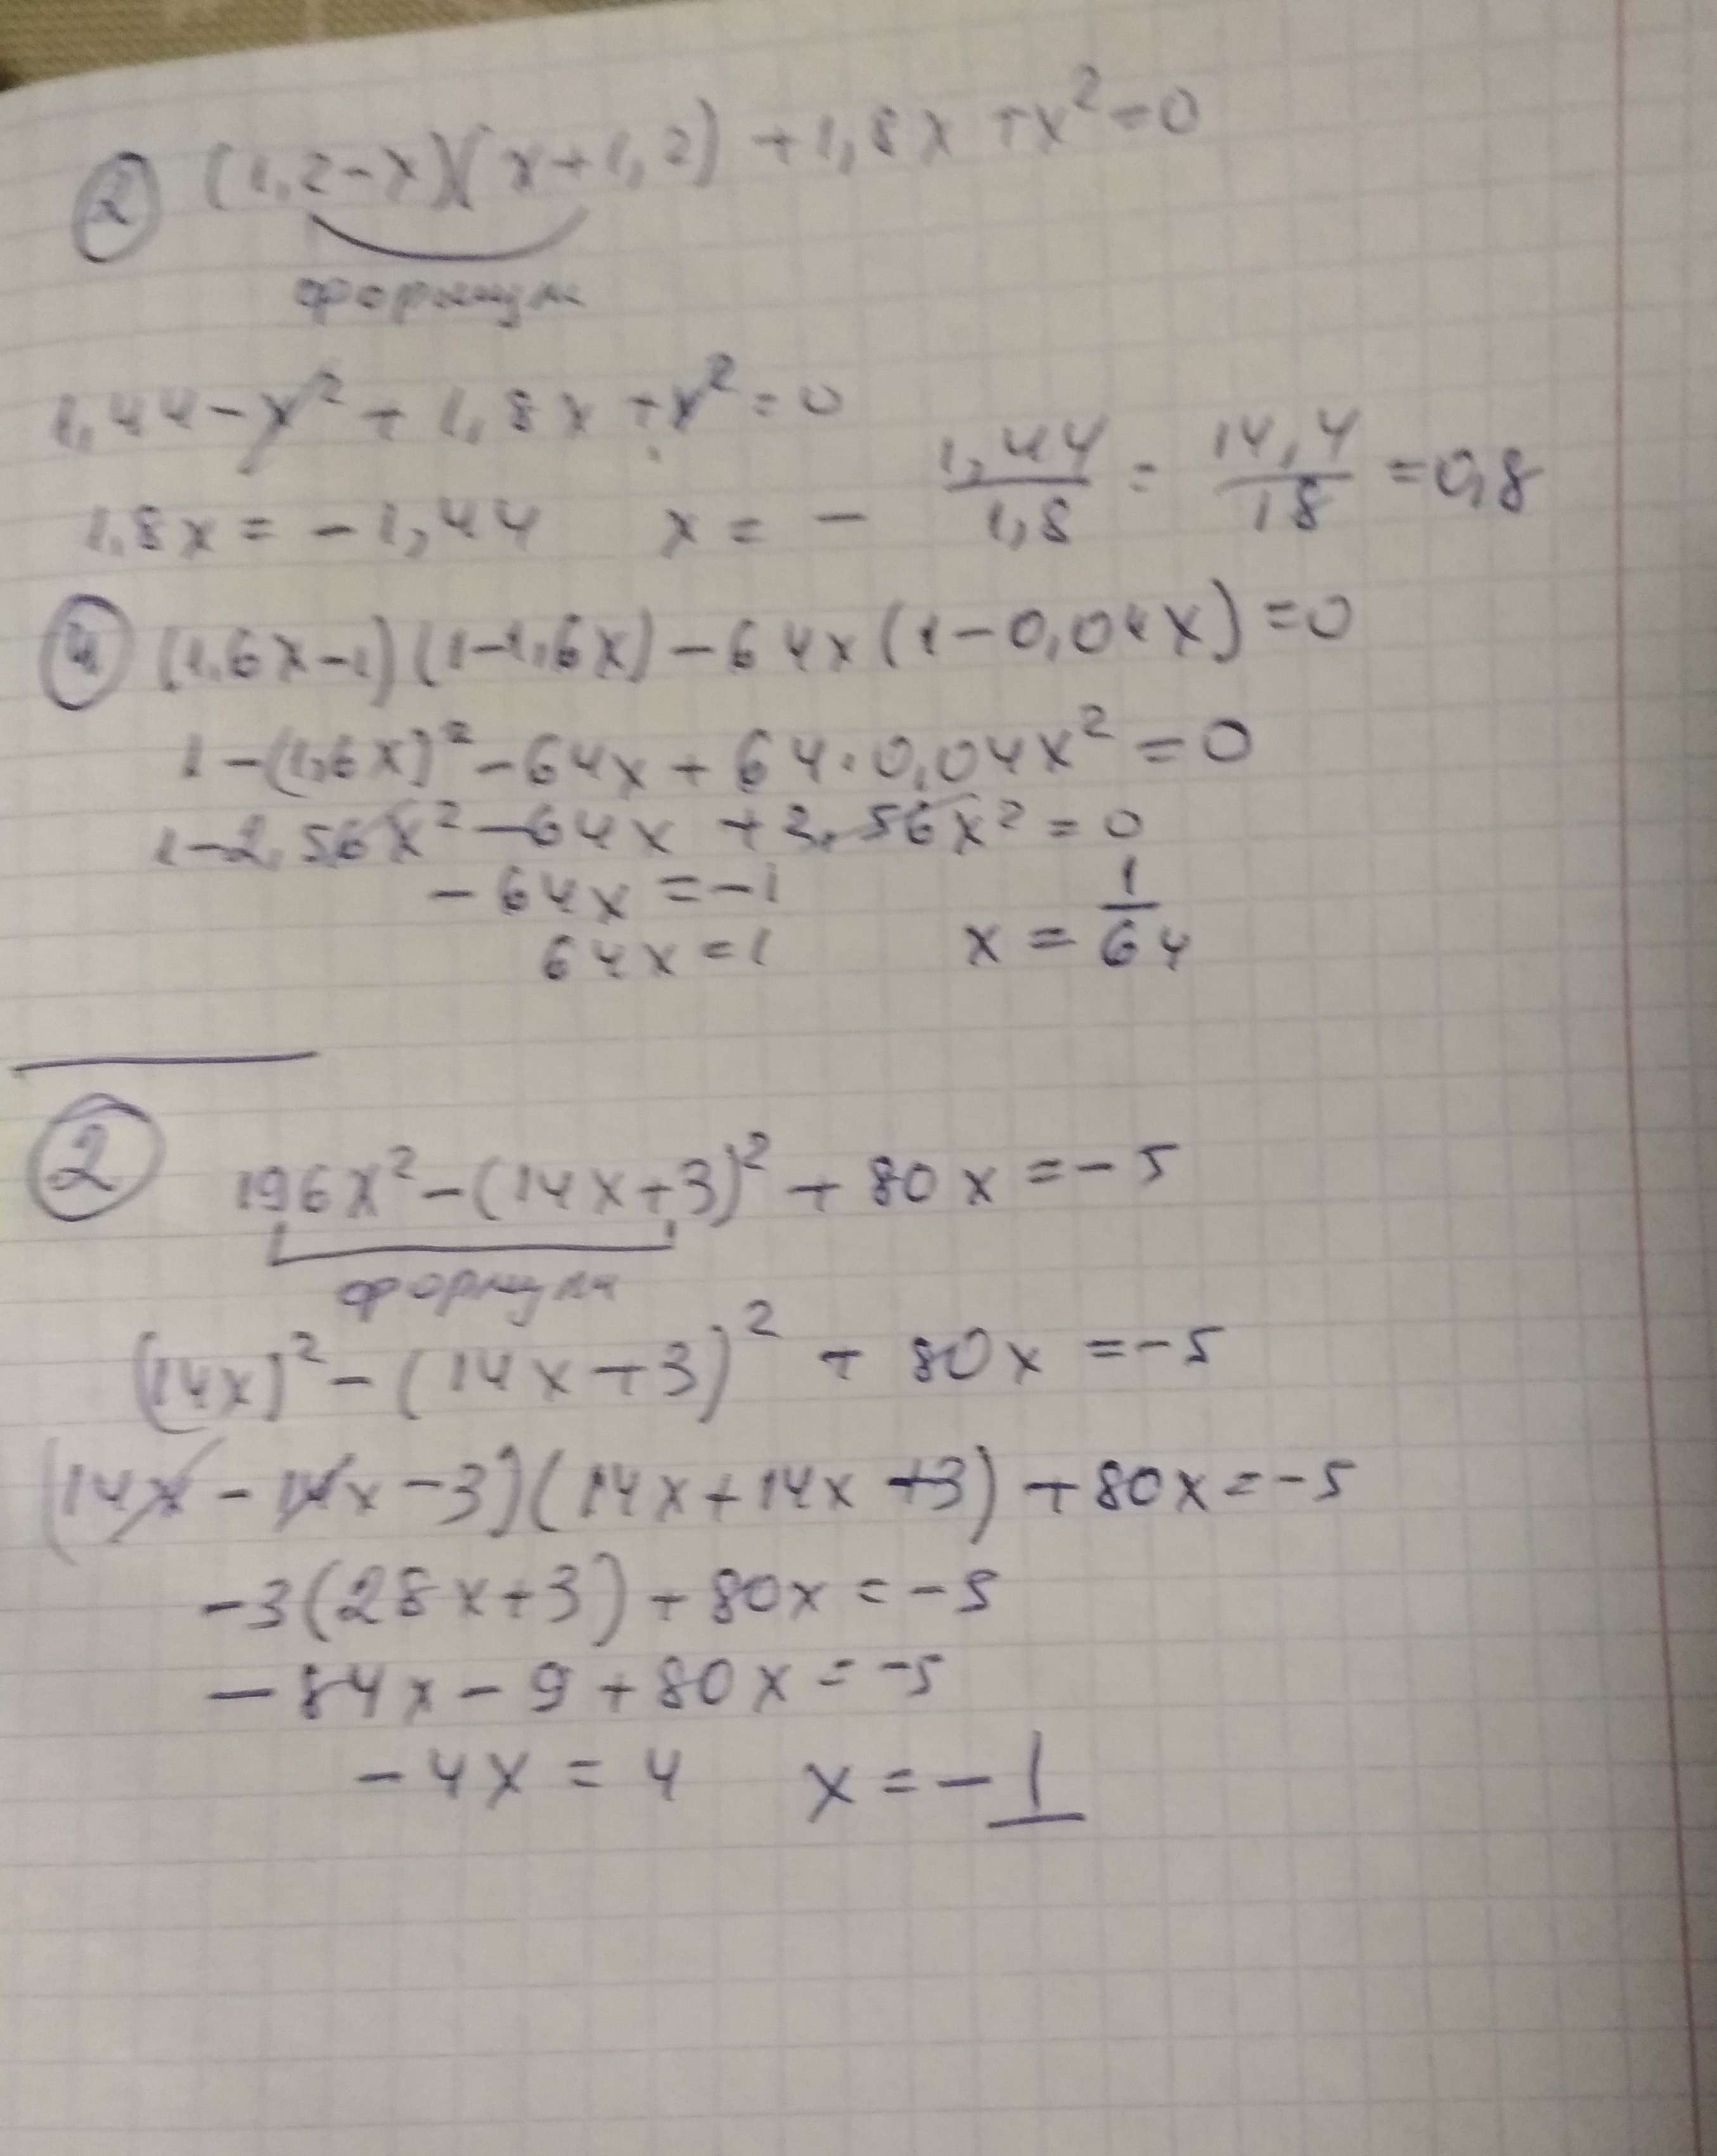 ② (1,2-x)(x+1,2) +1,8x +x²=0
формула
1,44-x² + 1,8x +x²=0
1,8x = -1,44 x = - 1,44/1,8 = 14,4/18 =0,8
④ (1,6x-1)(1-1,6x)-64x(1-0,04x)=0
1-(1,6x)²-64x+64·0,04x²=0
1-2,56x²-64x +2,56x²=0
-64x=-1
64x=1 x = 1/64
② 196x²-(14x+3)²+80x=-5
формула
(14x)²-(14x+3)² + 80x =-5
(14x-14x-3)(14x+14x+3)+80x=-5
-3(28x+3)+80x=-5
-84x-9+80x=-5
-4x=4 x=-1